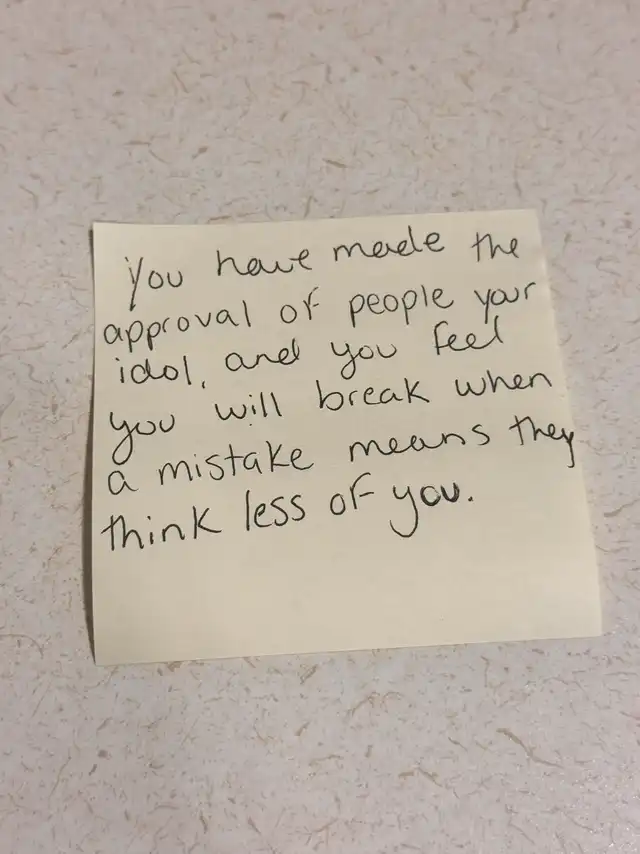 You have made the
approval of people your
idol, and you feel
you will break when
a mistake means they
think less of you.